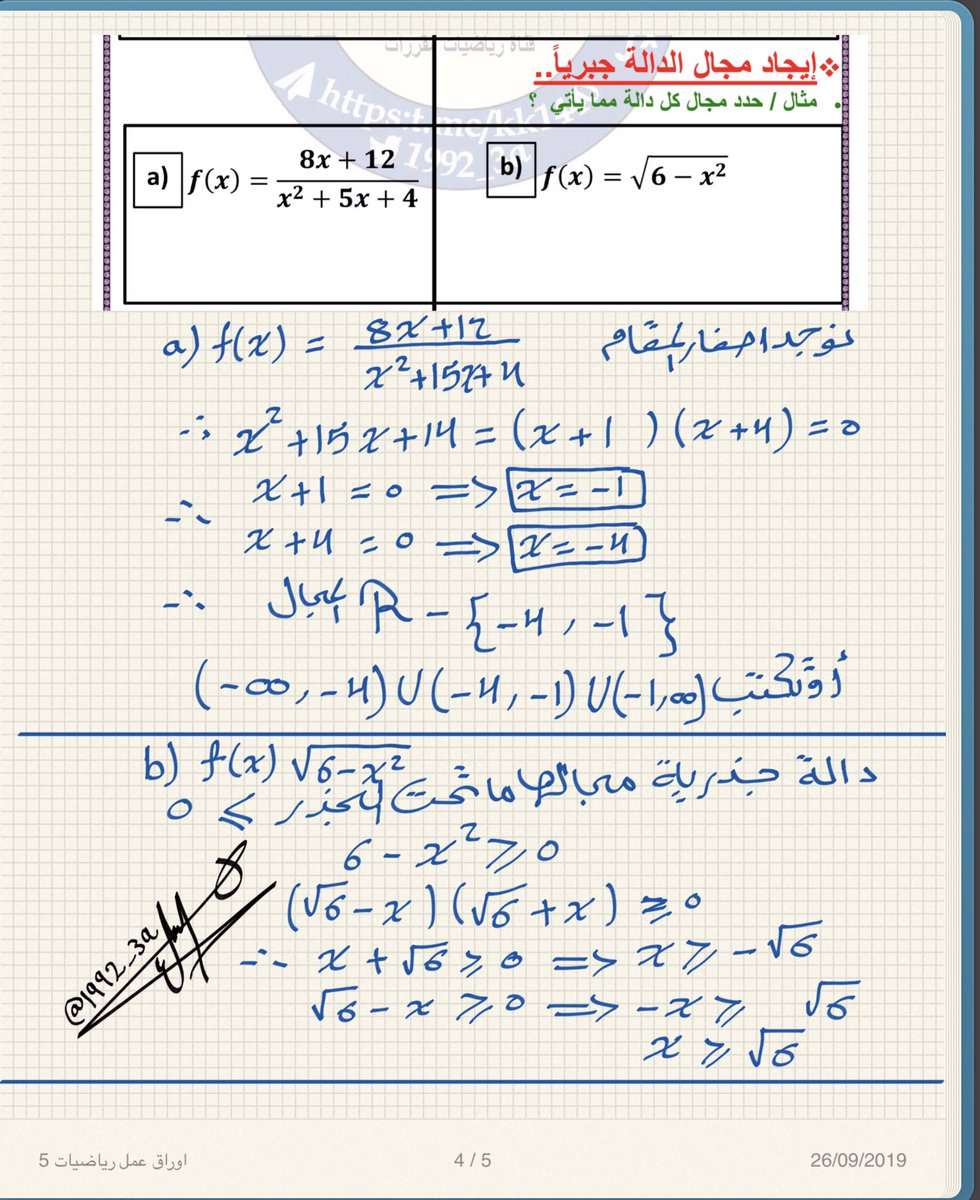 قناة رياضيات مقررات
❖إيجاد مجال الدالة جبرياً..
• مثال / حدد مجال كل دالة مما يأتي ؟
https:t.me/kk14
1992_3a
a) f(x) = (8x + 12)/(x² + 5x + 4)
b) f(x) = √(6 − x²)
a) f(x) = (8x+12)/(x²+15x+4) نوجد اصفار المقام
∴ x²+15x+14 = (x+1)(x+4) = 0
∴ x+1 = 0 ⟹ x = -1
x+4 = 0 ⟹ x = -4
∴ المجال R - {-4, -1}
أو تكتب (-∞, -4) U (-4, -1) U (-1, ∞)
b) f(x) √(6-x²) دالة جذرية مجالها ما تحت الجذر ⩽ 0
6 - x² ⩾ 0
(√6 - x)(√6 + x) ⩾ 0
∴ x + √6 ⩾ 0 ⟹ x ⩾ -√6
√6 - x ⩾ 0 ⟹ -x ⩾ √6
x ⩾ √6
@1992_3a
اوراق عمل رياضيات 5
4 / 5
26/09/2019